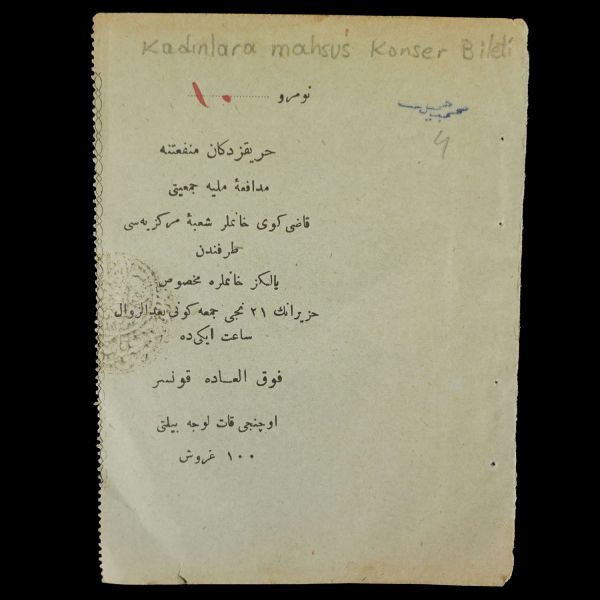 Kadınlara mahsus Konser Bileti
نومرو ١٠
4
حريقزدكان منفعتنه
مدافعهٔ مليه جمعيتى
قاضى كوى خانملر شعبهٔ مركزيه‌سى
طرفندن
يالكز خانملره مخصوص
حزيرانك ٢١ نجى جمعه كونى بعد الزوال
ساعت ايكى‌ده
فوق العاده قونسر
اوچنجى قات لوجه بيلتى
١٠٠ غروش